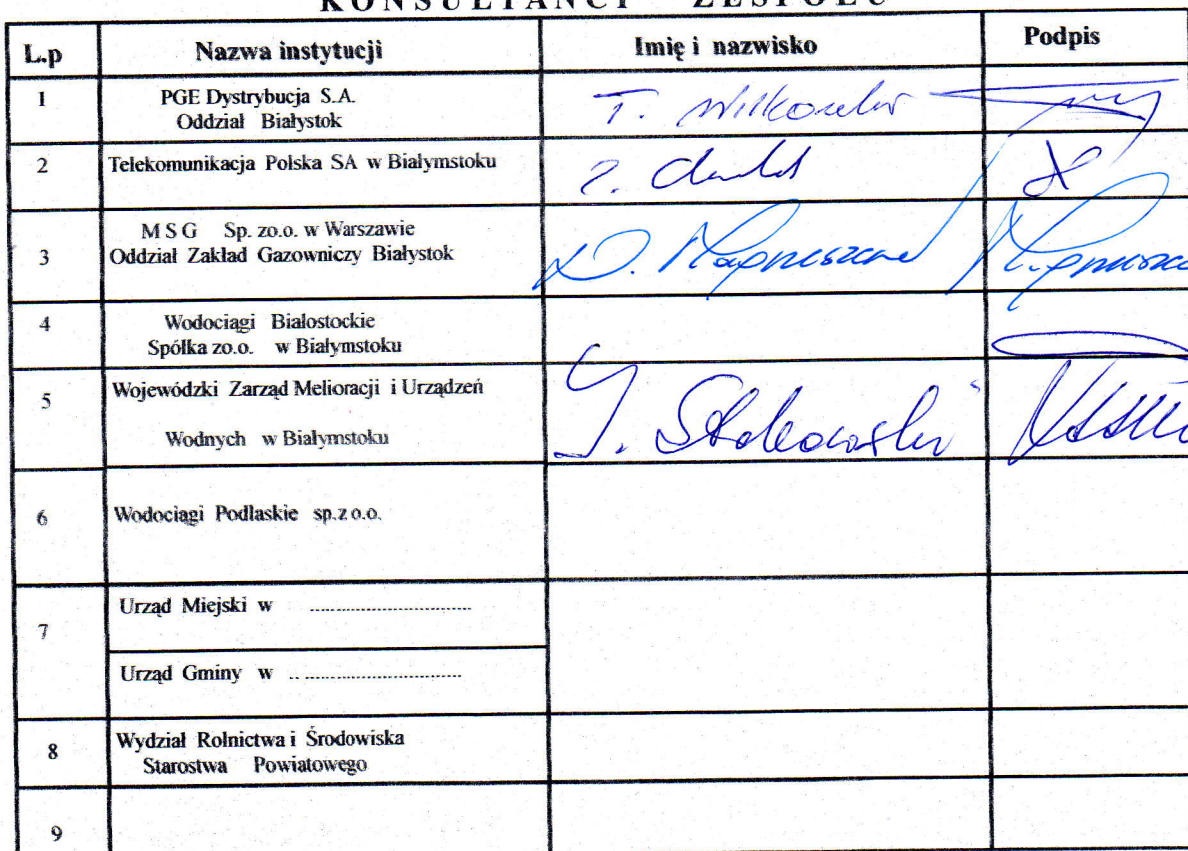 KONSULTANCI ZESPOŁU
L.p Nazwa instytucji Imię i nazwisko Podpis
1 PGE Dystrybucja S.A.
Oddział Białystok
T.
2 Telekomunikacja Polska SA w Białymstoku
3 M S G Sp. zo.o. w Warszawie
Oddział Zakład Gazowniczy Białystok
D.
4 Wodociągi Białostockie
Spółka zo.o. w Białymstoku
5 Wojewódzki Zarząd Melioracji i Urządzeń
Wodnych w Białymstoku
6 Wodociągi Podlaskie sp.z o.o.
7 Urząd Miejski w ................................
Urząd Gminy w ..................................
8 Wydział Rolnictwa i Środowiska
Starostwa Powiatowego
9